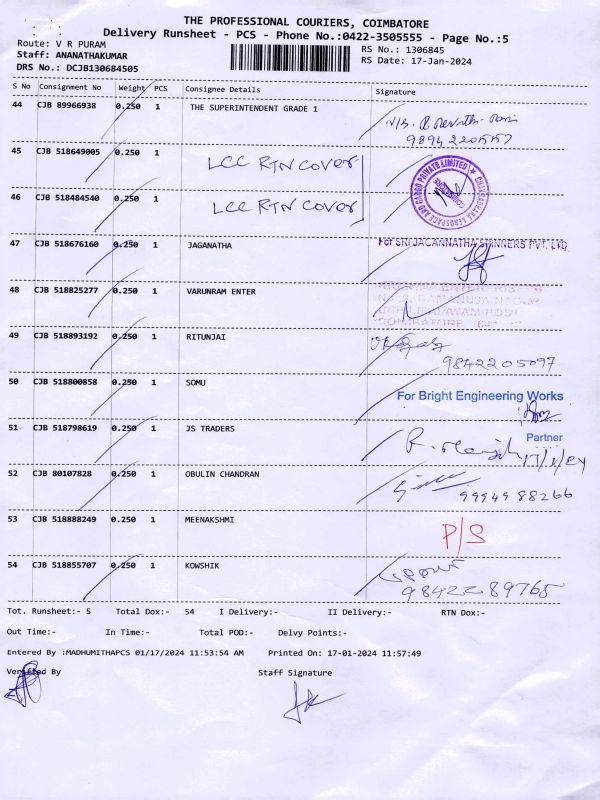 THE PROFESSIONAL COURIERS, COIMBATORE
Delivery Runsheet - PCS - Phone No.:0422-3505555 - Page No.:5
Route: V R PURAM
RS No.: 1306845
Staff: ANANATHAKUMAR
RS Date: 17-Jan-2024
DRS No.: DCJB130684505
S No Consignment No Weight PCS Consignee Details Signature
44 CJB 89966938 0.250 1 THE SUPERINTENDENT GRADE 1
9894220557
45 CJB 518649005 0.250 1 LCC RTN COVER
46 CJB 518484540 0.250 1 LCC RTN COVER
47 CJB 518676160 0.250 1 JAGANATHA For SRI JAGANNATHA SPINNERS PVT. LTD.
48 CJB 518825277 0.250 1 VARUNRAM ENTER
49 CJB 518893192 0.250 1 RITUNJAI
9842205097
50 CJB 518800858 0.250 1 SOMU For Bright Engineering Works
Partner
51 CJB 518798619 0.250 1 JS TRADERS 17/1/24
52 CJB 80107828 0.250 1 OBULIN CHANDRAN
9994988266
53 CJB 518888249 0.250 1 MEENAKSHMI P/S
54 CJB 518855707 0.250 1 KOWSHIK
9842289765
Tot. Runsheet:- 5 Total Dox:- 54 I Delivery:- II Delivery:- RTN Dox:-
Out Time:- In Time:- Total POD:- Delvy Points:-
Entered By :MADHUMITHAPCS 01/17/2024 11:53:54 AM Printed On: 17-01-2024 11:57:49
Verified By Staff Signature